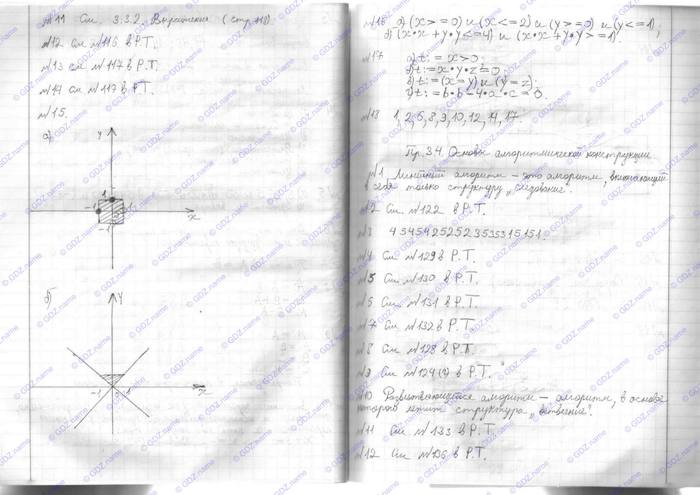 №11 См. 3.3.2. Выражения (стр. 118)
№12 см №116 в Р.Т.
№13 см №117 в Р.Т.
№14 см №117 в Р.Т.
№15.
а)
y
1
-1
1
-1
x
б)
y
-1
0
1
x
№16 а) (x >= 0) и (x <= 2) и (y >= 0) и (y <= 1);
б) (x*x + y*y <= 4) и (x*x + y*y >= 1).
№17 а) t: = x > 0;
б) t: = x*y*z = 0;
в) t: = (x = y) и (y = z);
г) t: = b*b - 4*a*c = 0.
№18 1, 2, 6, 8, 9, 10, 12, 14, 17.
Пр. 3.4. Основы алгоритмической конструкции
№1 Линейный алгоритм – это алгоритм, включающий
в себя только структуру „следование".
№2 См. №122 в Р.Т.
№3
№4 См №129 в Р.Т.
№5 См №130 в Р.Т.
№6 См №131 в Р.Т.
№7 См №132 в Р.Т.
№8 См №128 в Р.Т.
№9 См №124(2) в Р.Т.
№10 Разветвляющийся алгоритм – алгоритм, в основе
которого лежит структура „ветвление".
№11 См №133 в Р.Т.
№12 См №136 в Р.Т.
© GDZ.name